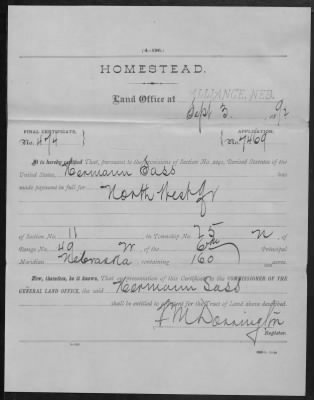 (4—196.)
HOMESTEAD.
Land Office at ALLIANCE, NEB.
Sept 3. 189
FINAL CERTIFICATE, APPLICATION,
No. 474 No. 7469
It is hereby certified That, pursuant to the provisions of Section No. 2291, Revised Statutes of the
United States, Hermann Sass has
made payment in full for
North West Qr
of Section No. 11 in Township No. 25 N, of
Range No. 49 W. of the 6th Principal
Meridian Nebraska containing 160 acres.
Now, therefore, be it known, That on presentation of this Certificate to the COMMISSIONER OF THE
GENERAL LAND OFFICE, the said Hermann Sass
shall be entitled to a Patent for the Tract of Land above described.
F. M. Dorrington
Register.